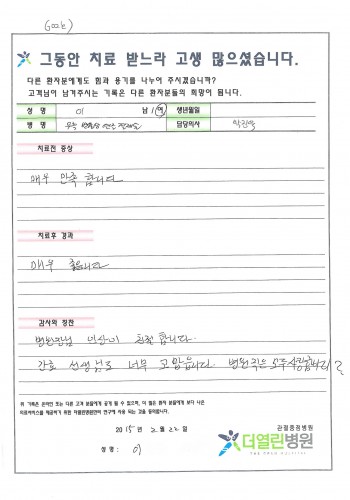 그동안 치료 받느라 고생 많으셨습니다.
다른 환자분에게도 힘과 용기를 나누어 주시겠습니까?
고객님이 남겨주시는 기록은 다른 환자분들의 희망이 됩니다.
성 명 이 남 / 여 생년월일
병 명 우측 담당의사
치료전 증상
매우 만족 합니다
치료후 경과
매우 좋습니다
감사와 칭찬
병원장님 인상이 친절 합니다.
간호 선생님도 너무 고맙습니다. 병원직은 모두
위 기록은 온라인 또는 다른 고객 분들에게 공개 될 수 있으며, 더 많은 환자 분들에게 보다 나은
의료서비스를 제공하기 위한 더열린병원만의 연구에 사용 되는 것을 동의합니다.
2015년 2월 22일
성 명 : 이
관절중점병원
더열린병원